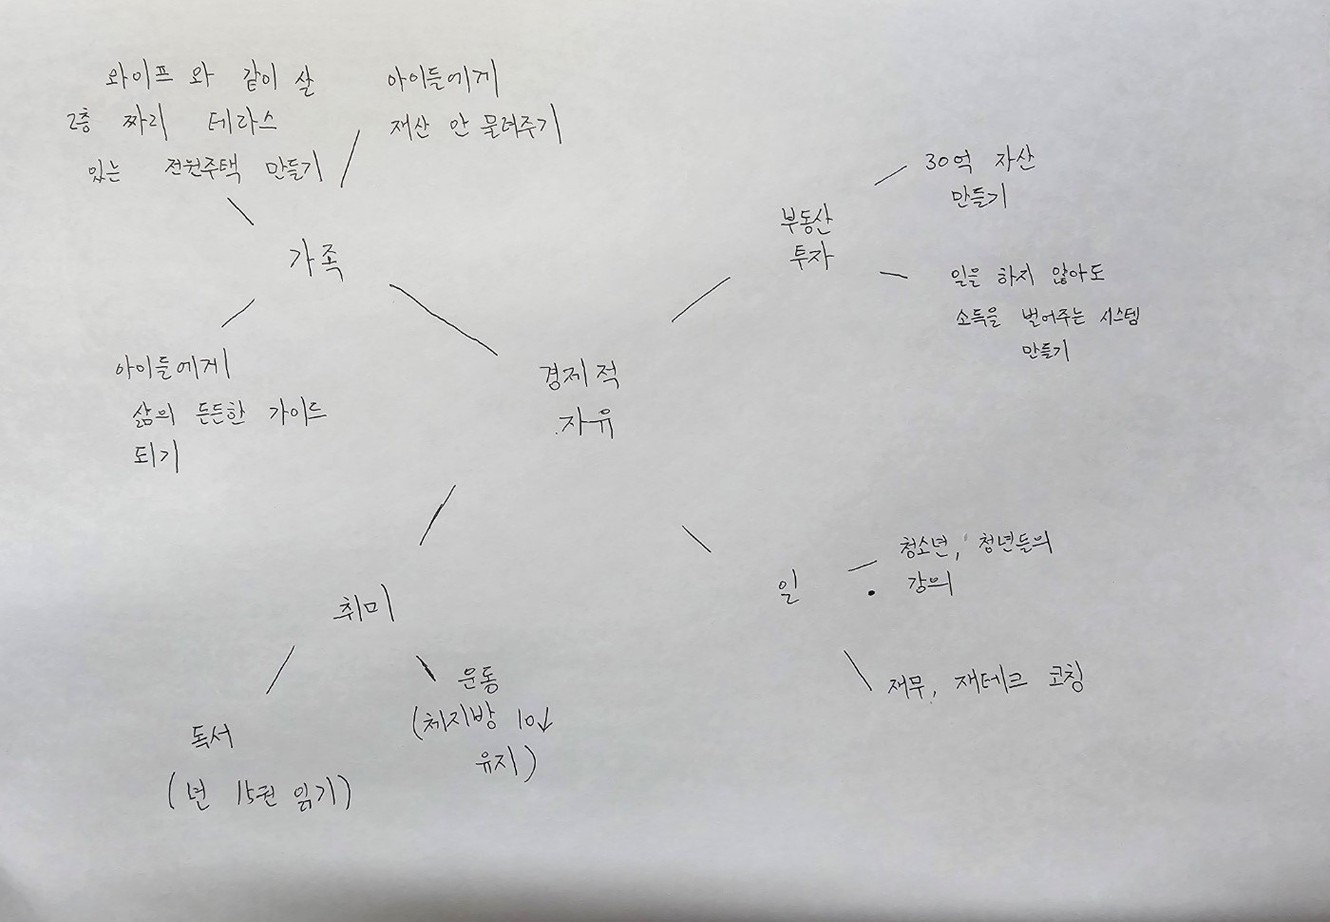 와이프 와 같이 살
2층 짜리 테라스
있는 전원주택 만들기
아이들에게
재산 안 물려주기
가족
아이들에게
삶의 든든한 가이드
되기
경제적
자유
부동산
투자
30억 자산
만들기
일을 하지 않아도
소득을 벌어주는 시스템
만들기
취미
독서
(년 15권 읽기)
운동
(체지방 10↓
유지)
일
청소년, 청년들의
강의
재무, 재테크 코칭